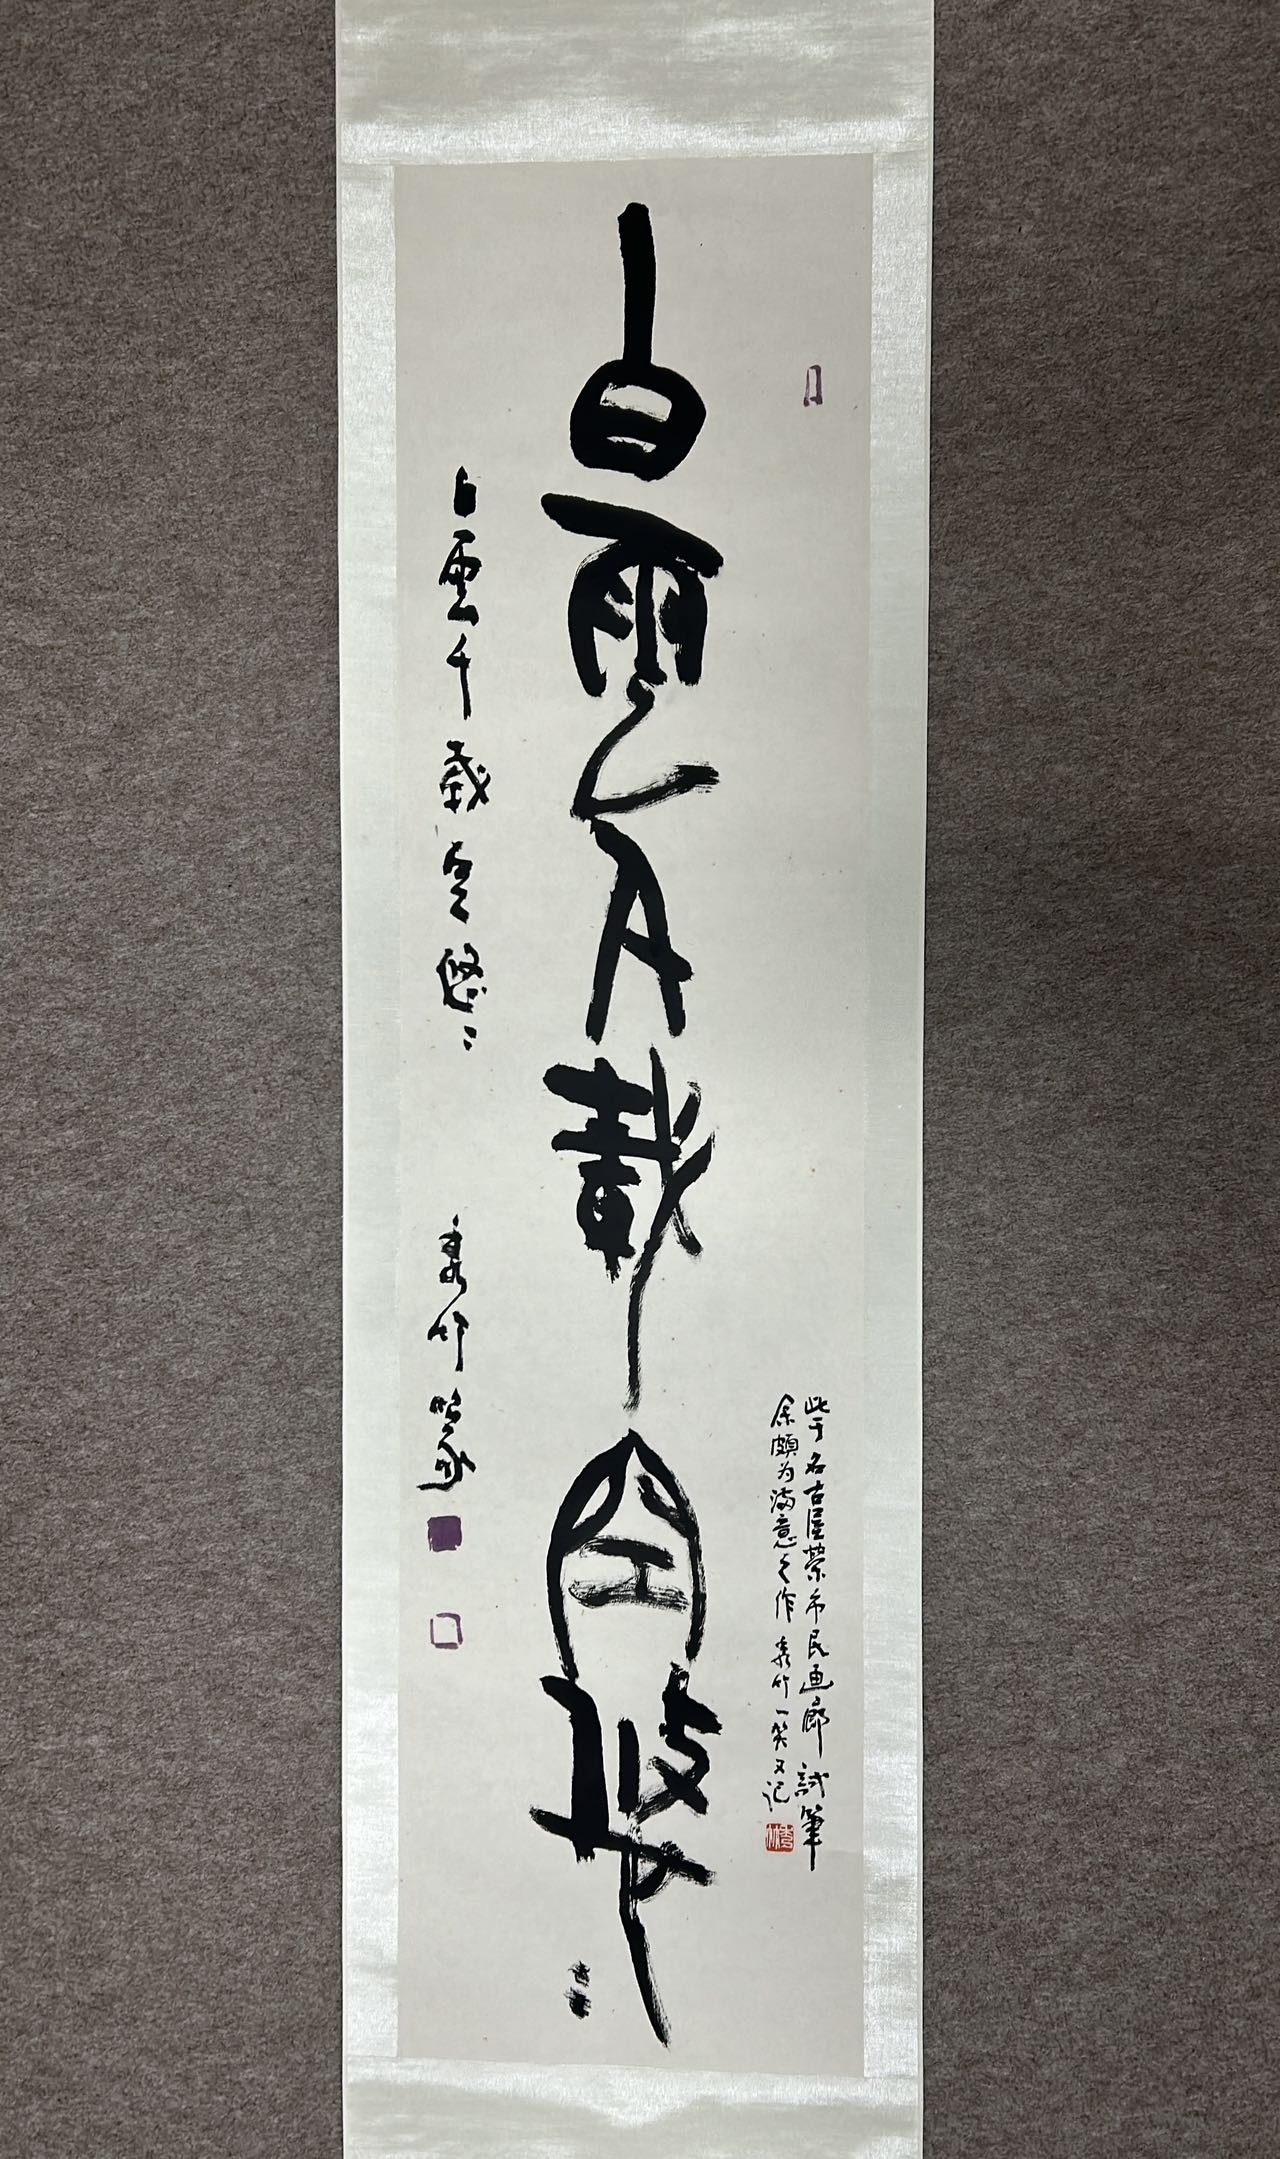 白雲千載空悠〻
白雲千載空悠〻
秀竹篆
此于名古屋榮市民画廊試筆
余頗为满意之作 秀竹一笑又记